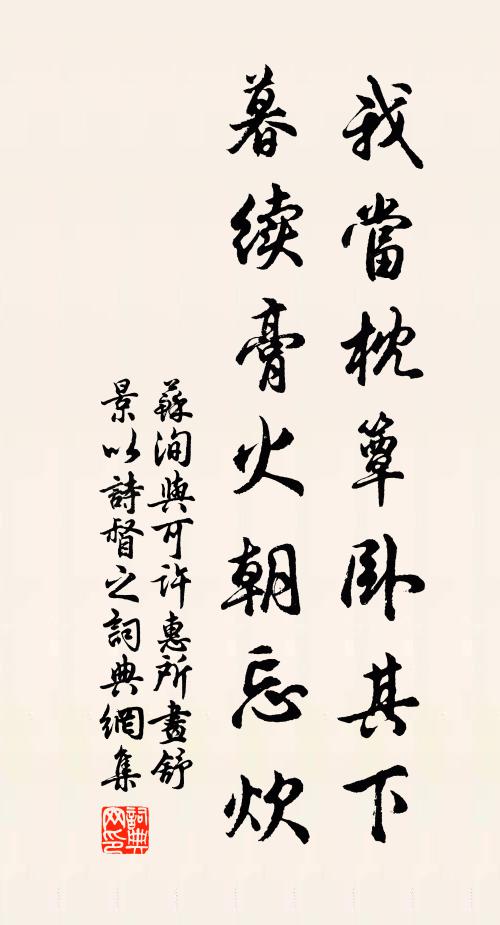 我當枕簟卧其下
暮續膏火朝忘炊
蘇洵與可許惠所畫舒
景以詩督之詞典網集
詞典
网印